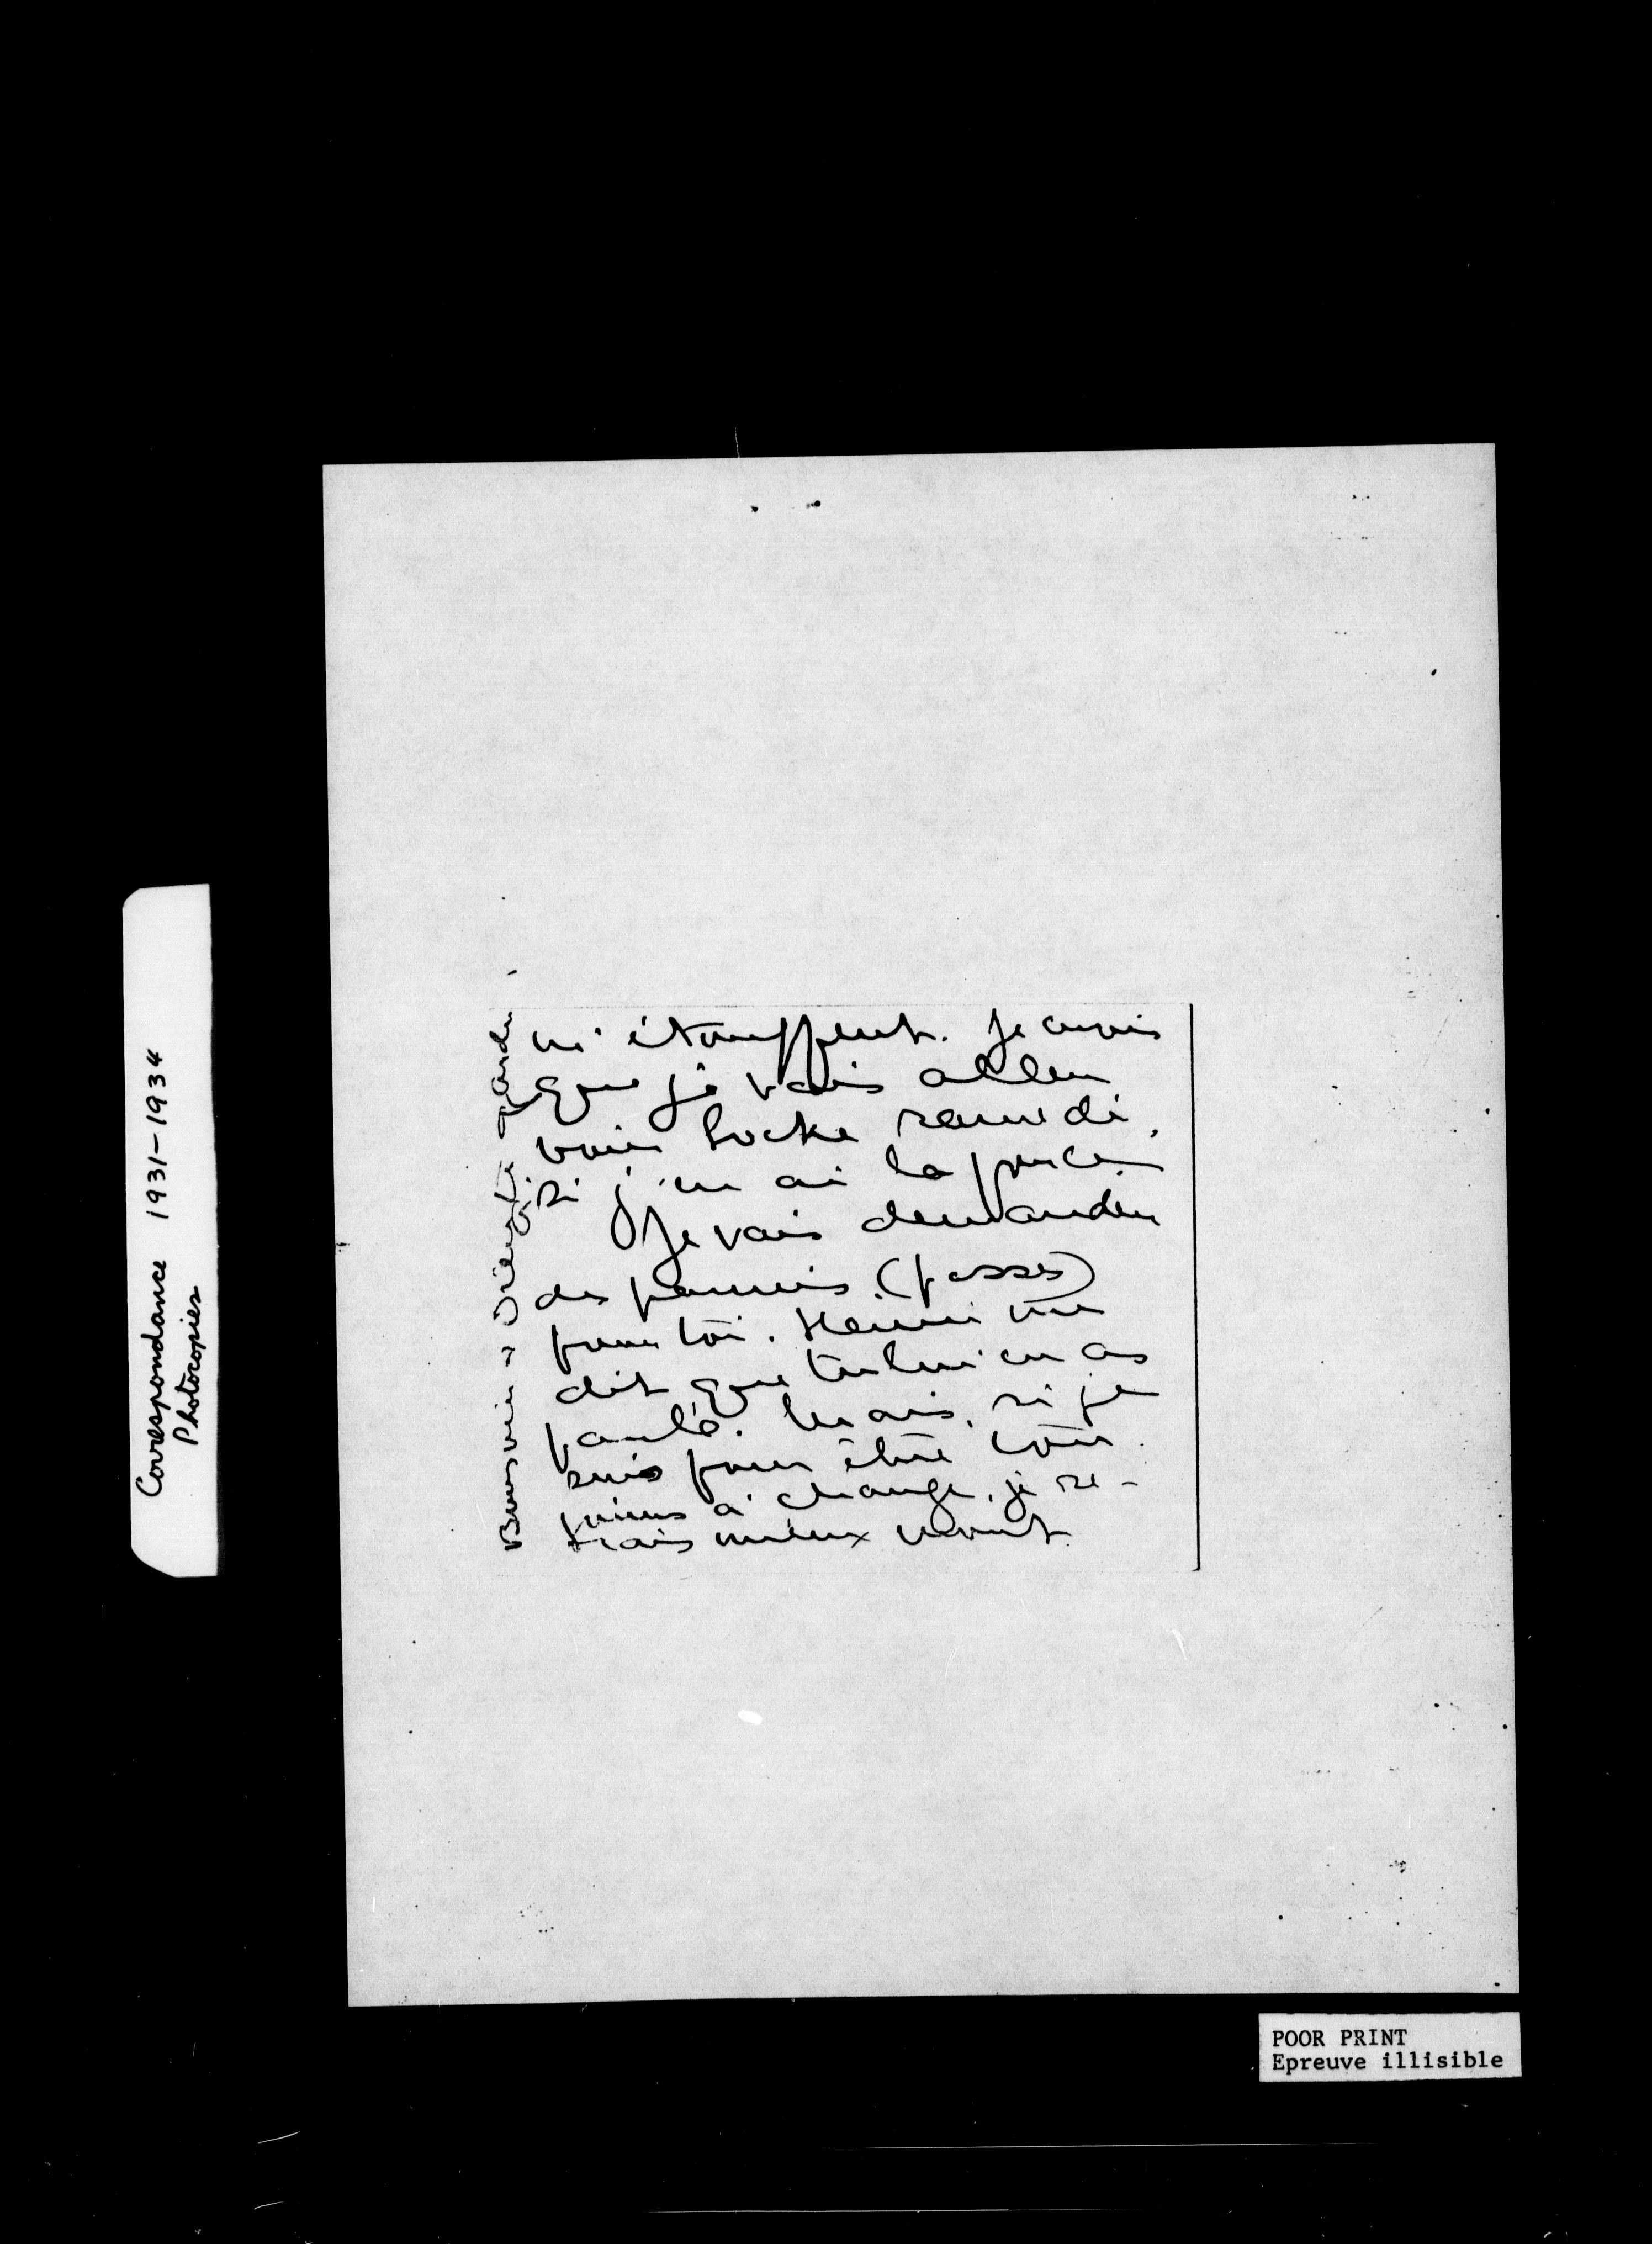 Correspondance 1931-1934
Photocopies
m'étouffent. Je crois
que je vais aller
voir Locke samedi,
si j'en ai la force.
Je vais demander
des permis (passes)
pour toi. Henri me
dit que tu lui en as
parlé. Mais, si je
suis pour être tou-
jours à charge, je se-
rais mieux mort.
Bonsoir à
garde
POOR PRINT
Epreuve illisible